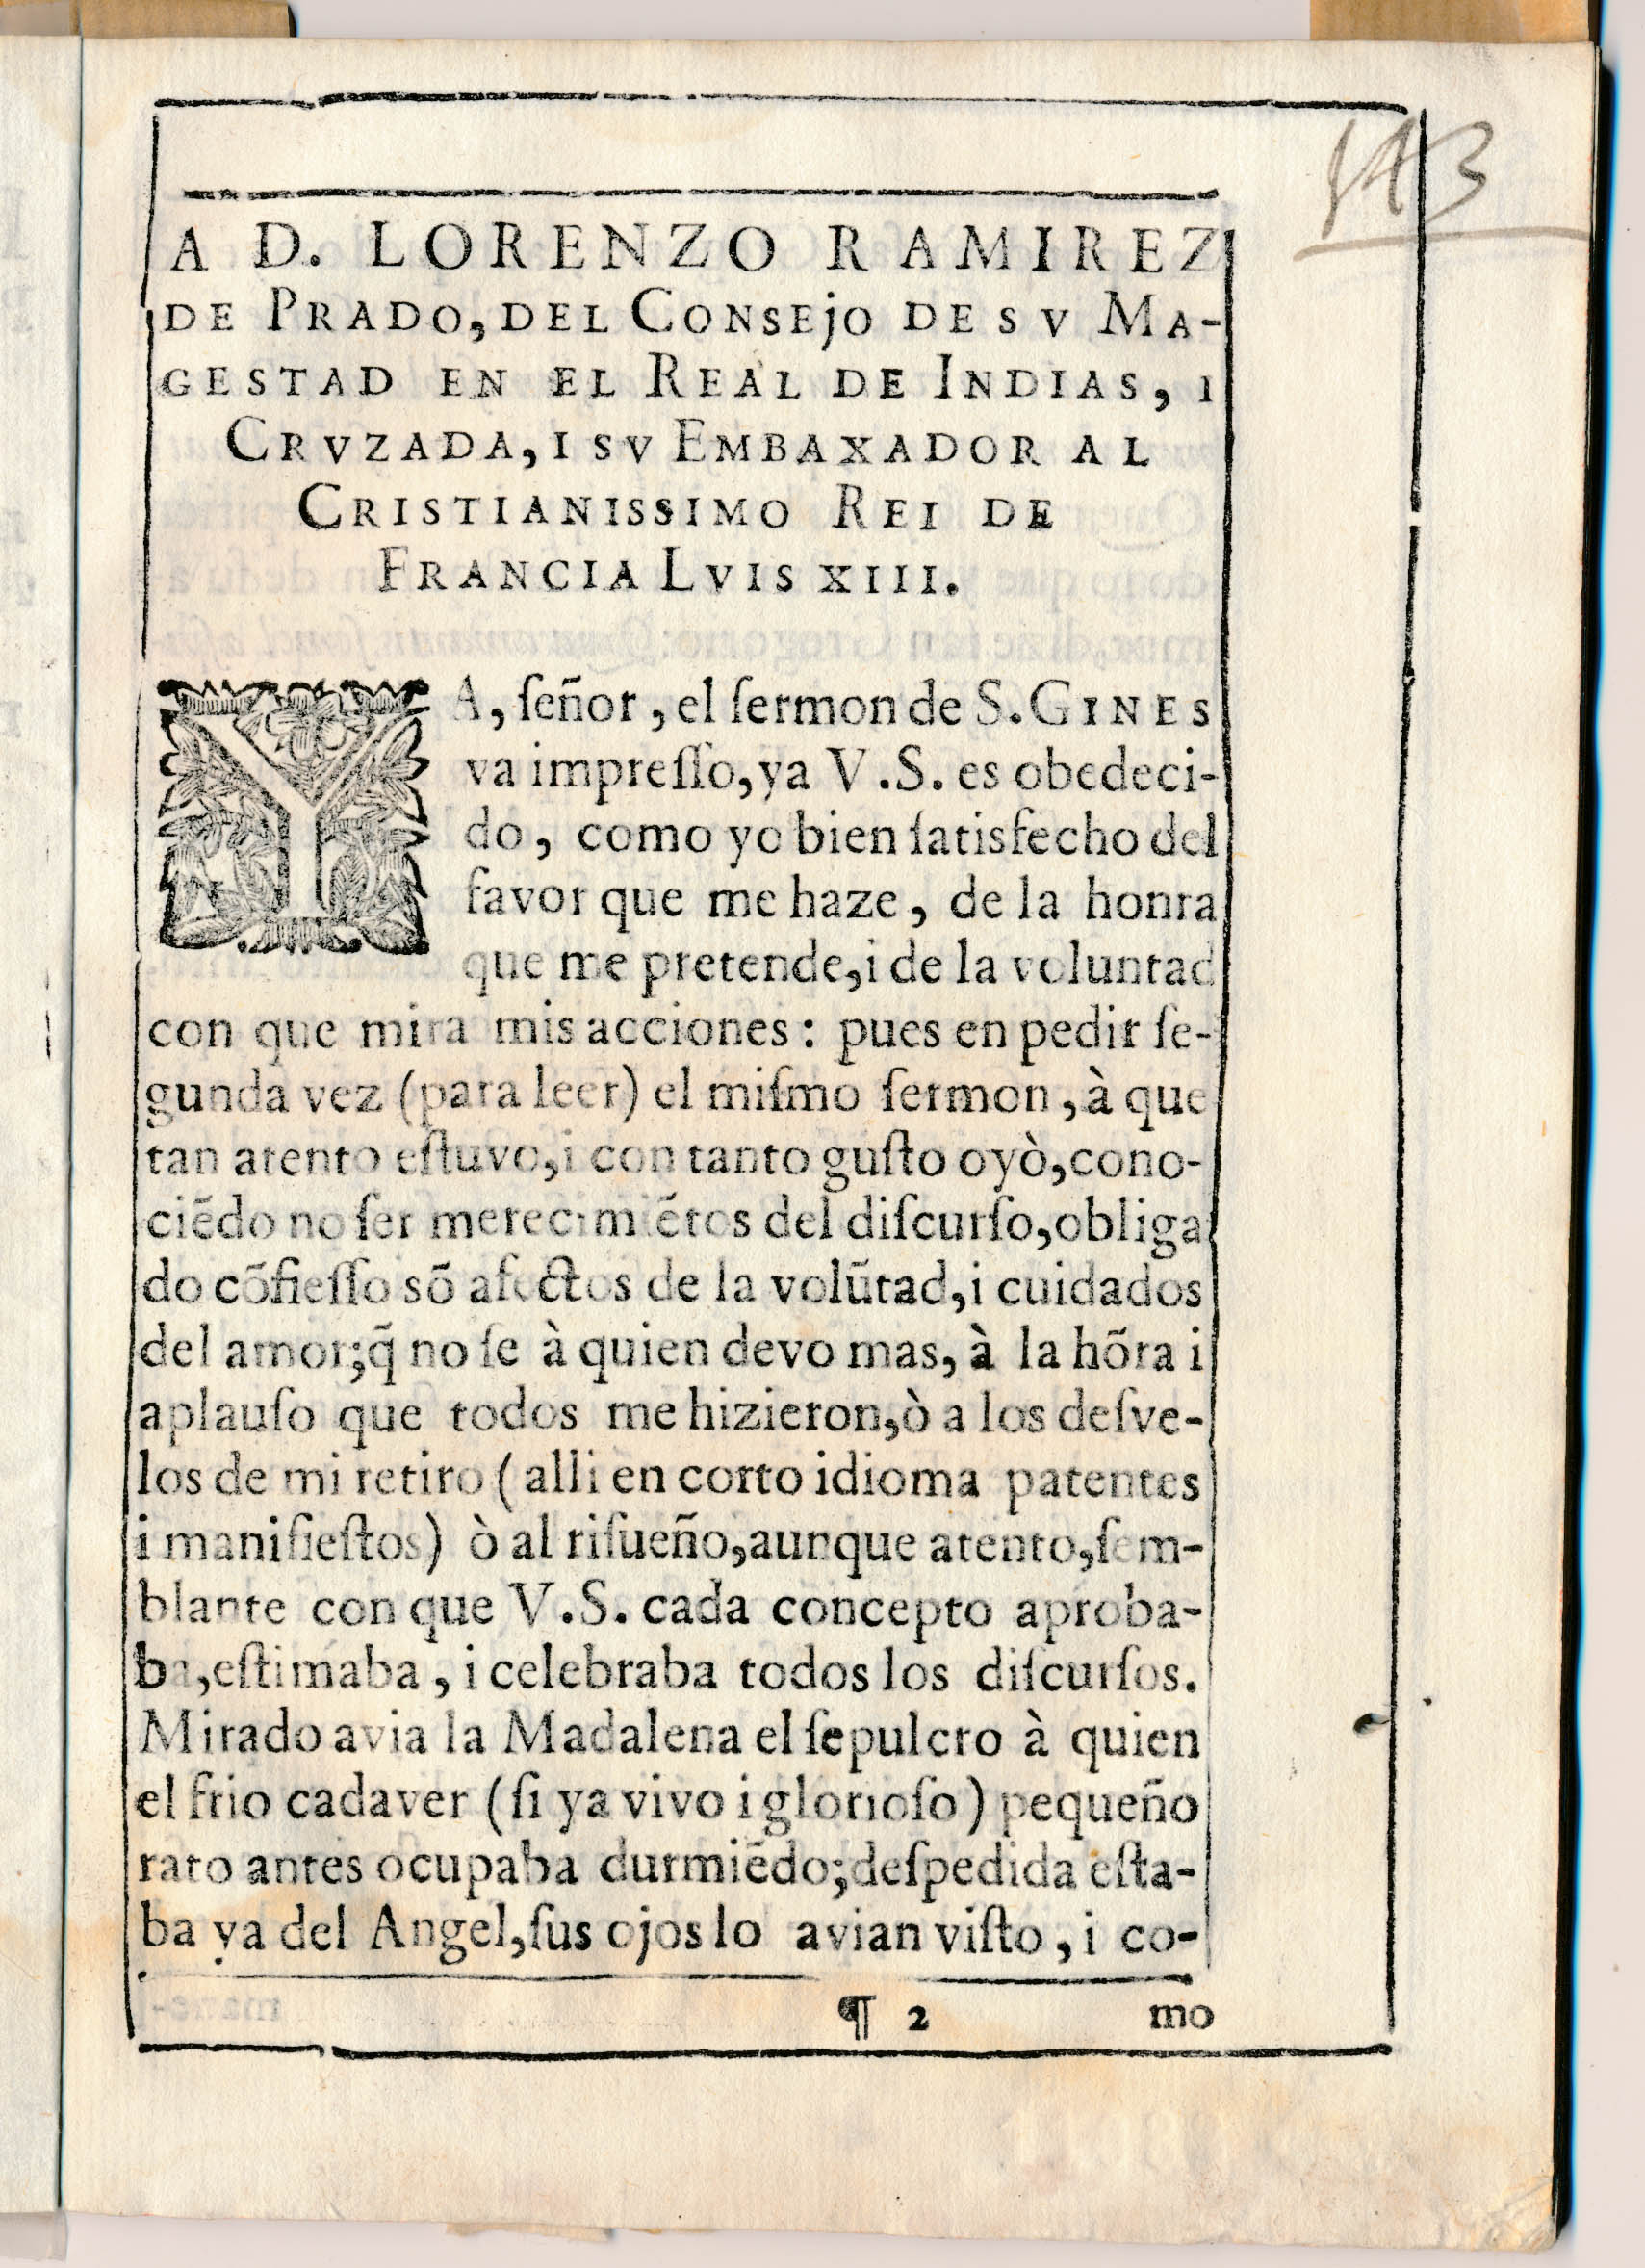 143
A D. LORENZO RAMIREZ
DE PRADO, DEL CONSEjO DE SV MA-
GESTAD EN EL REAL DE INDIAS, I
CRVZADA, I SV EMBAXADOR AL
CRISTIANISSIMO REI DE
FRANCIA LVIS XIII.
YA, ſeñor, el ſermon de S. GINES
va impreſſo, ya V.S. es obedeci-
do, como yo bien ſatisfecho del
favor que me haze, de la honra
que me pretende, i de la voluntad
con que mira mis acciones: pues en pedir ſe-
gunda vez (para leer) el miſmo ſermon, à que
tan atento eſtuvo, i con tanto guſto oyò, cono-
ciẽdo no ſer merecimiẽtos del diſcurſo, obliga
do cõfieſſo sõ afectos de la volũtad, i cuidados
del amor; q̃ no ſe à quien devo mas, à la hõra i
aplauſo que todos me hizieron, ò a los deſve-
los de mi retiro (alli en corto idioma patentes
i manifieſtos) ò al riſueño, aunque atento, ſem-
blante con que V.S. cada concepto aproba-
ba, eſtimaba, i celebraba todos los diſcurſos.
Mirado avia la Madalena el ſepulcro à quien
el frio cadaver (ſi ya vivo i glorioſo) pequeño
rato antes ocupaba durmiẽdo; deſpedida eſta-
ba ya del Angel, ſus ojos lo avian viſto, i co-
¶ 2 mo